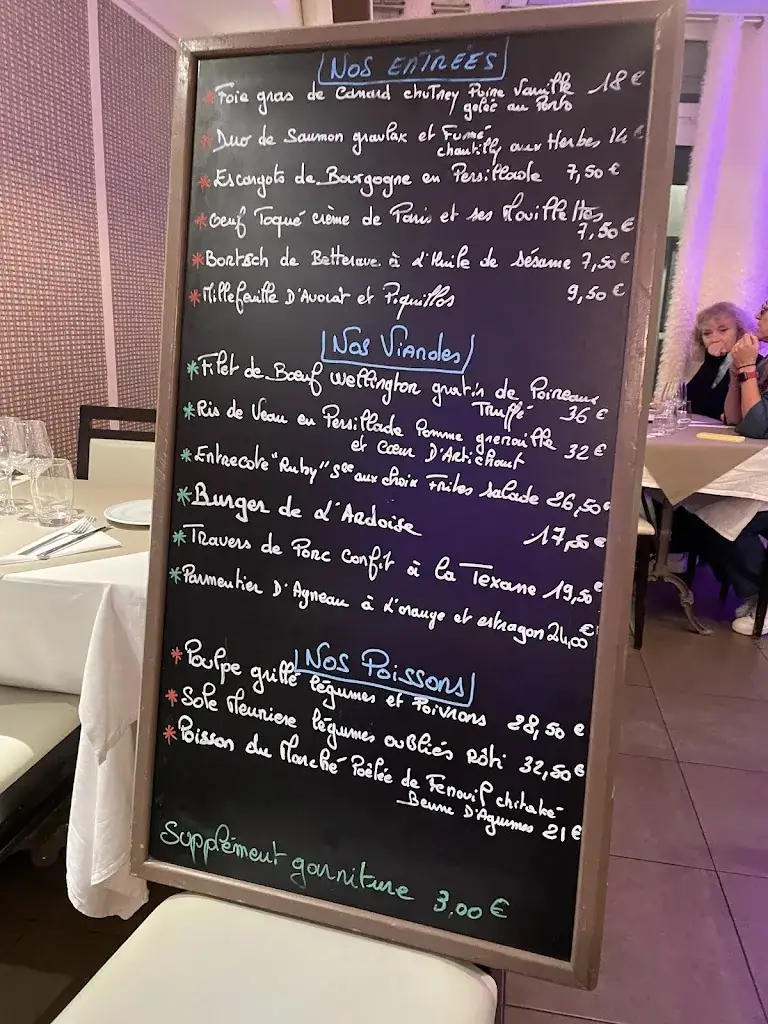 NOS ENTRÉES
* Foie gras de Canard chutney Poire Vanille 18 €
gelée au Porto
* Duo de Saumon gravlax et Fumé
chantilly aux Herbes 14 €
* Escargots de Bourgogne en Persillade 7,50 €
* Oeuf Toqué crème de Paris et ses Mouillettes
7,50 €
* Bortsch de Betterave à l'Huile de Sésame 7,50 €
* Millefeuille D'Avocat et Piquillos 9,50 €
Nos Viandes
* Filet de Bœuf Wellington gratin de Poireaux
Truffé 36 €
* Ris de Veau en Persillade Pomme grenaille 32 €
et Cœur D'Artichaut
* Entrecote "Ruby" Sce aux choix Frites Salade 26,50 €
* Burger de l'Ardoise 17,50 €
* Travers de Porc Confit à la Texane 19,50 €
* Parmentier D'Agneau à l'orange et estragon 24,00 €
Nos Poissons
* Poulpe grillé légumes et Poivrons 28,50 €
* Sole Meuniere légumes oubliés Rôti 32,50 €
* Poisson du Marché Poêlée de Fenouil
Beurre D'Agrumes 21 €
Supplément garniture 3,00 €